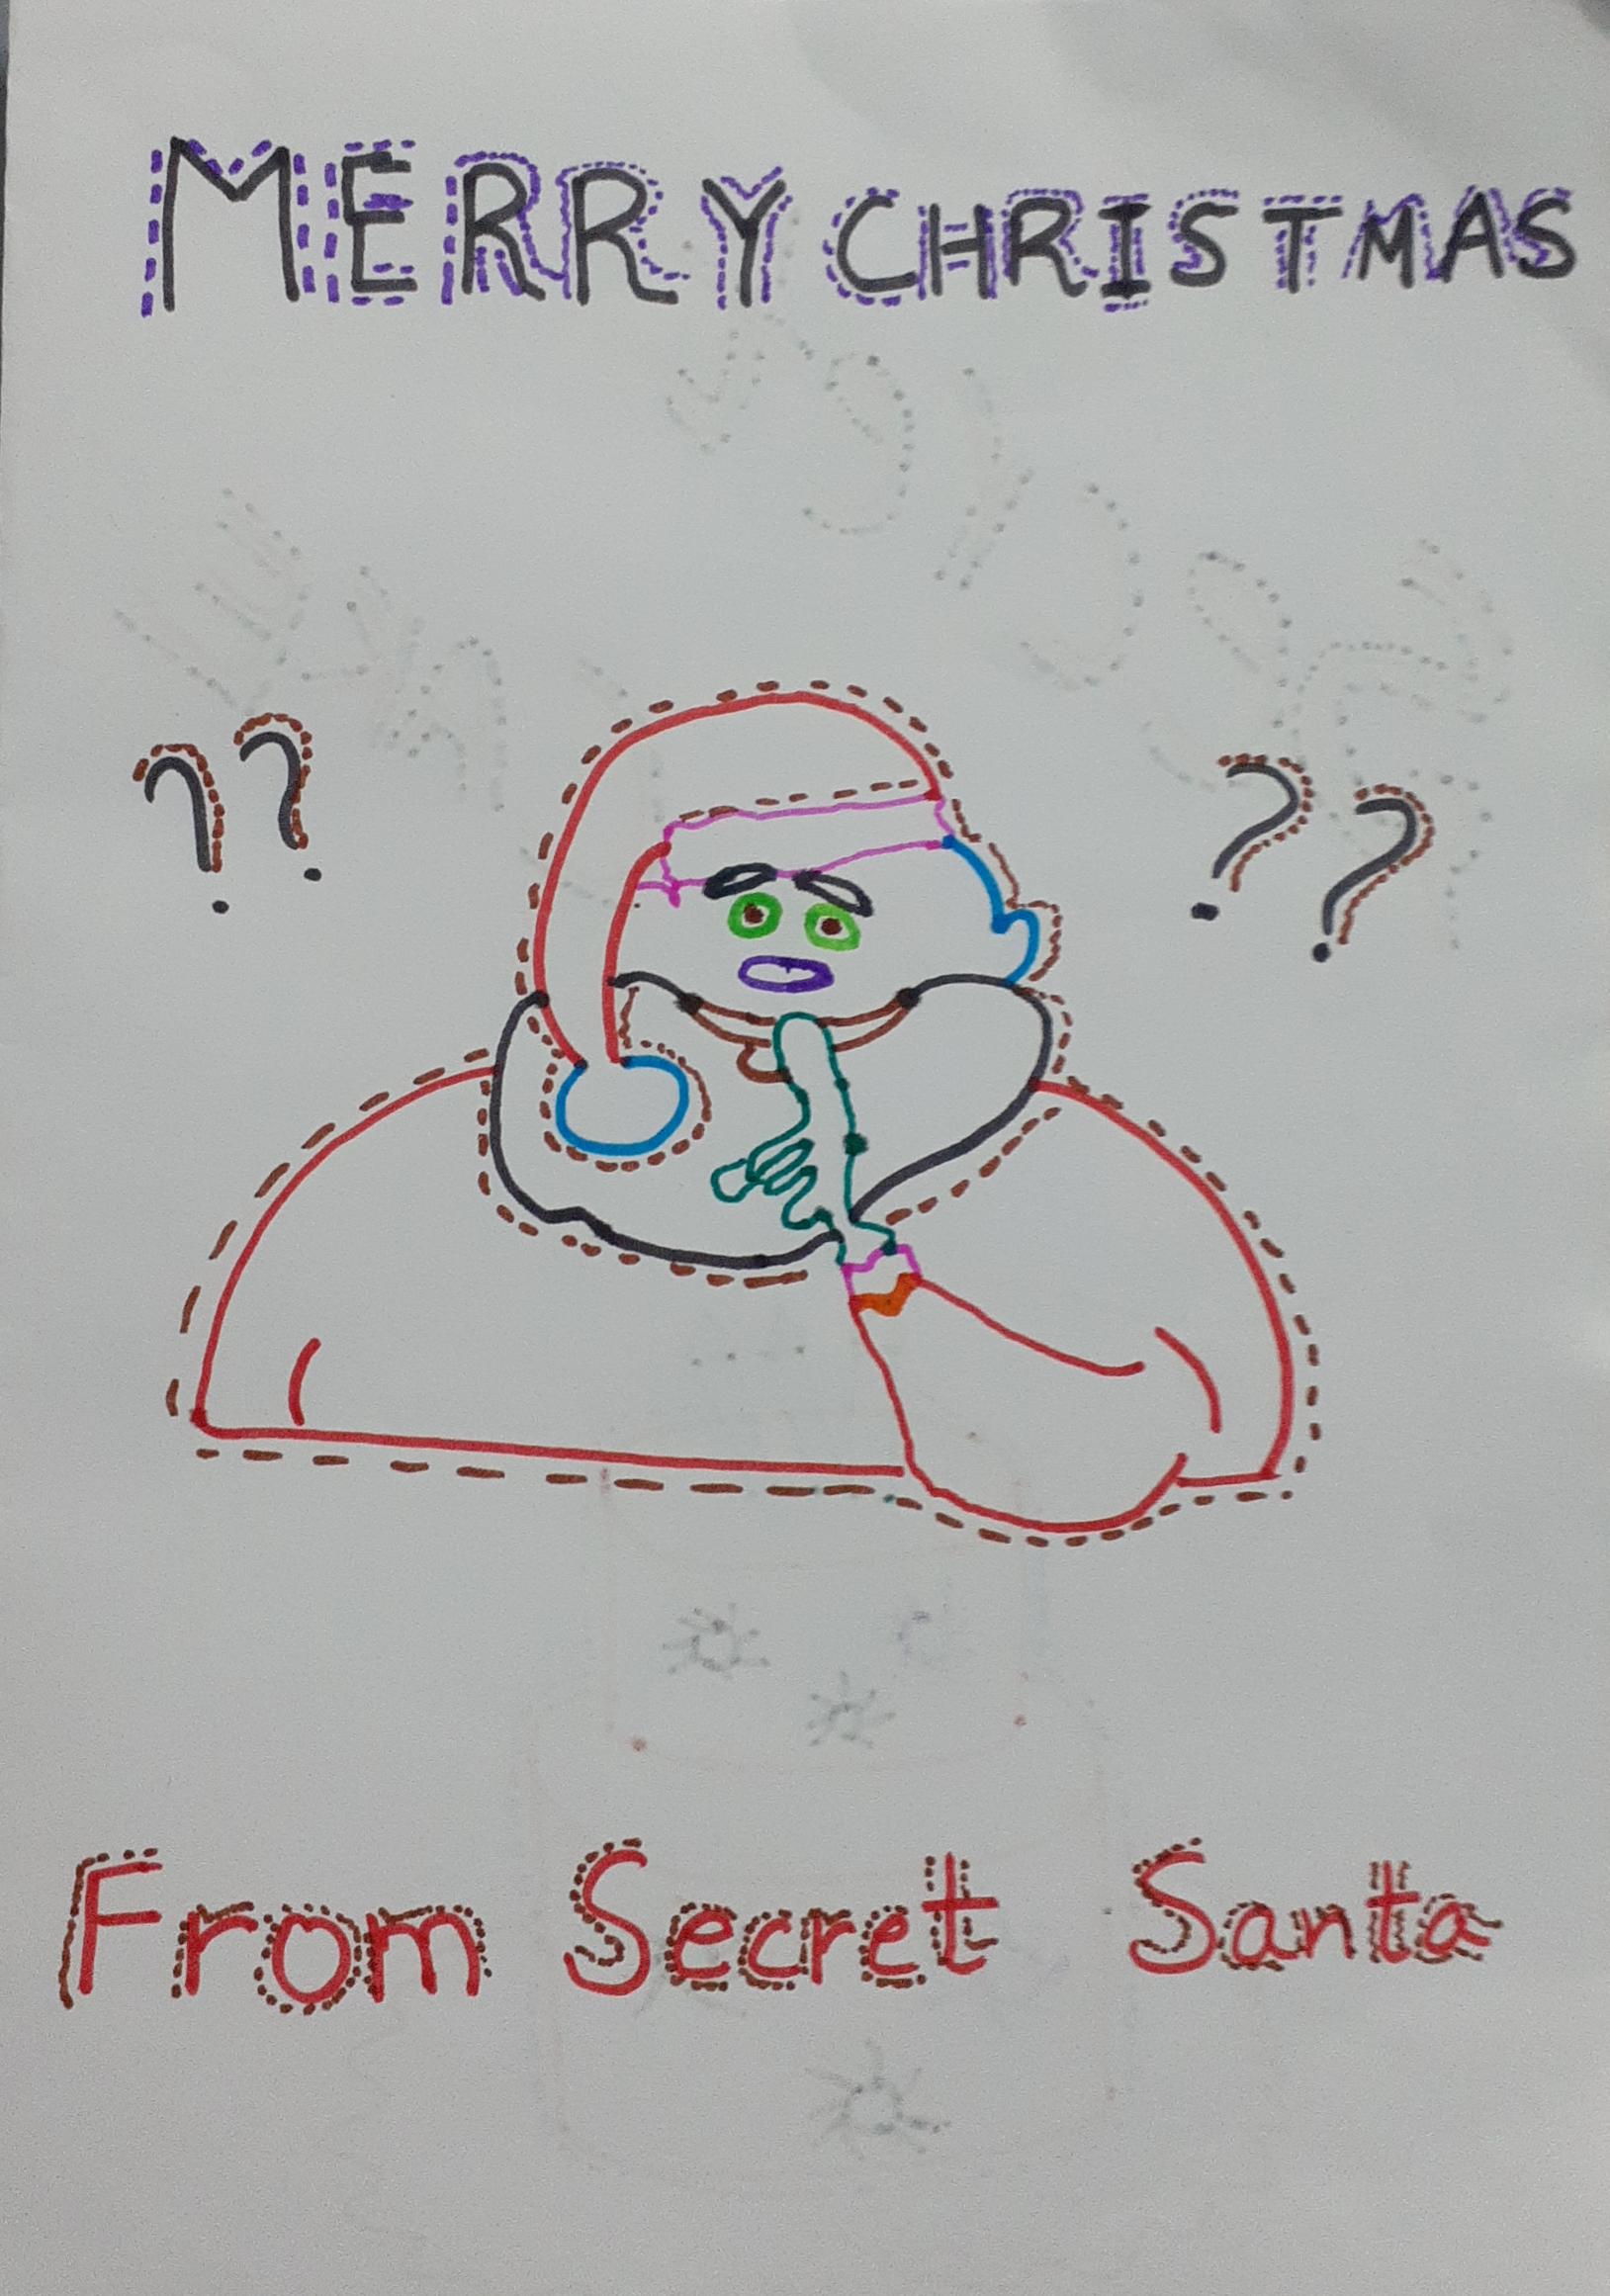 MERRY CHRISTMAS
?? ??
From Secret Santa